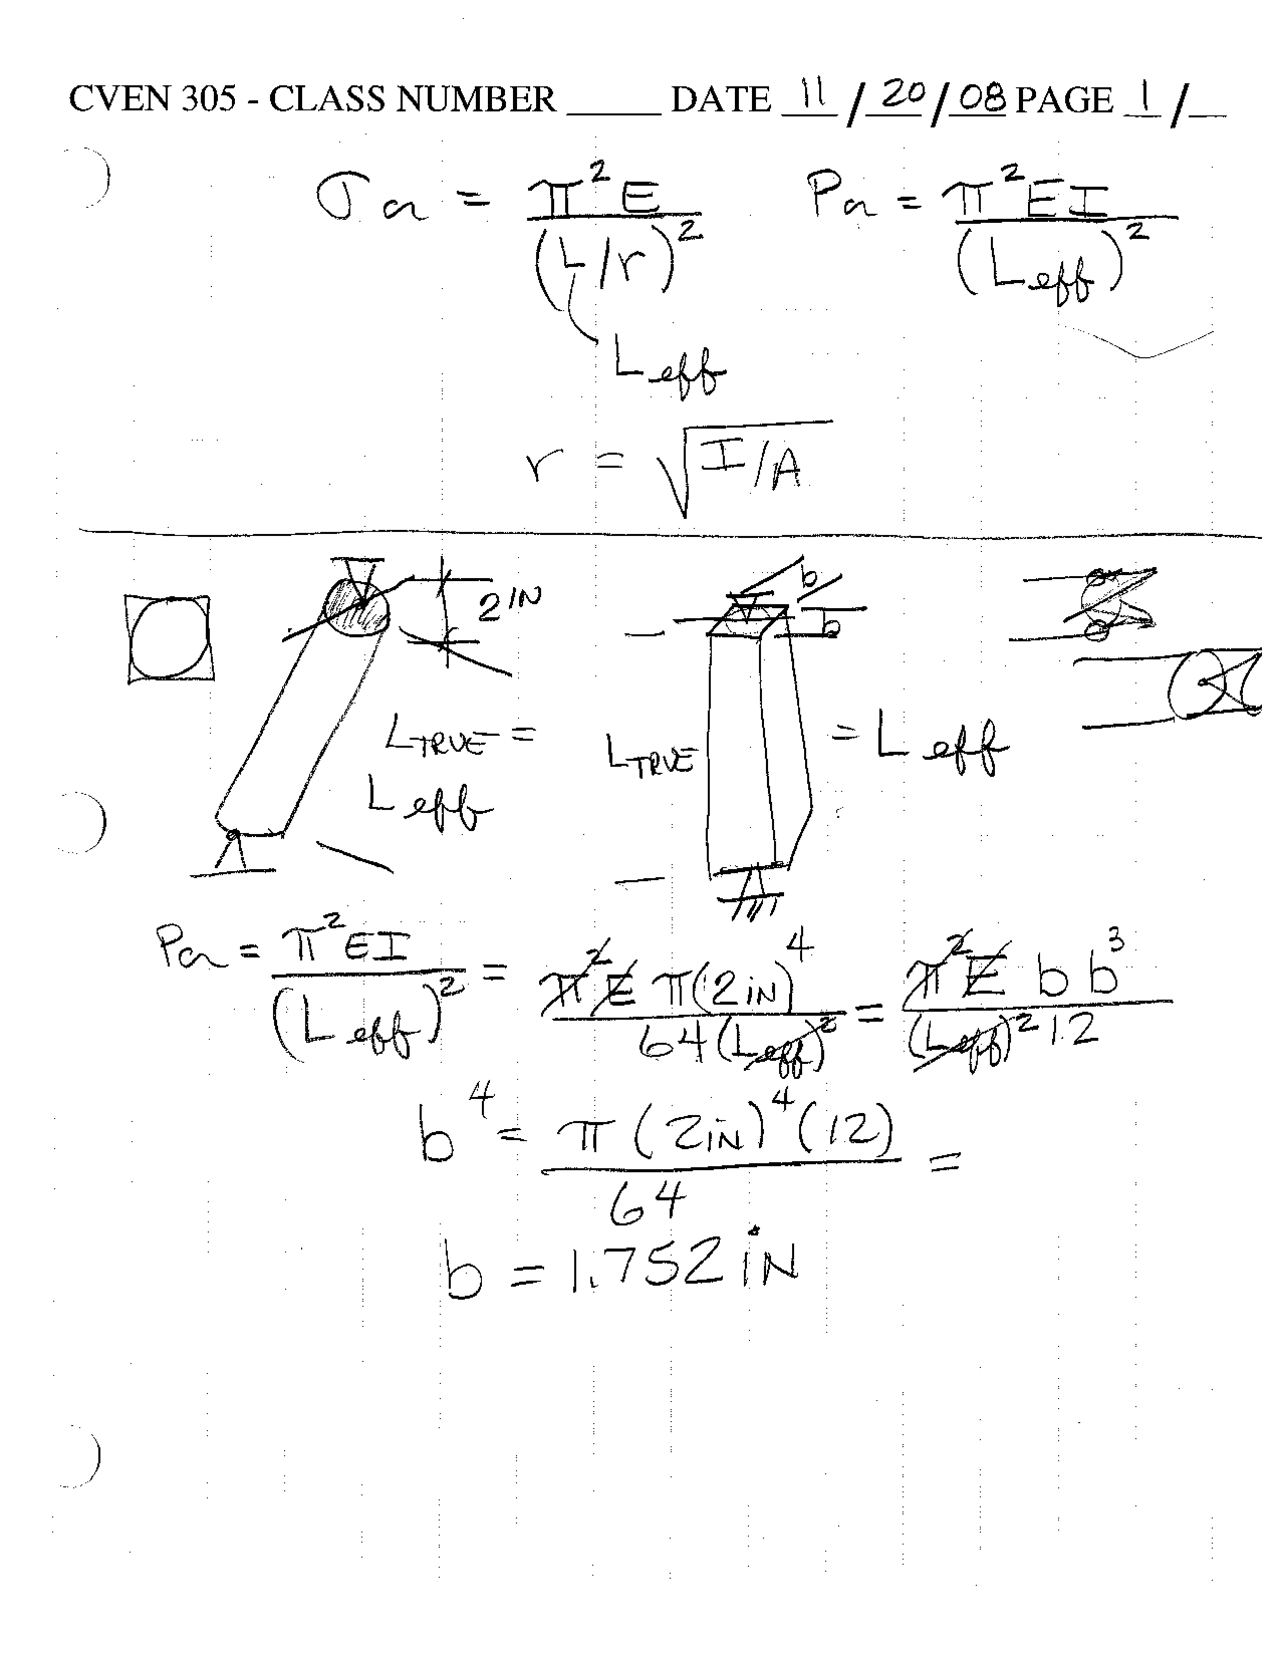 CVEN 305 - CLASS NUMBER _____ DATE 11 / 20 / 08 PAGE 1 / __
σcr = π²E / (L/r)²    Pcr = π²EI / (Leff)²
Leff
r = √I/A
2 IN
b
b
LTRUE =
Leff
LTRUE
= Leff
Pcr = π²EI / (Leff)² = π²E π(2in)⁴ / 64(Leff)² = π²E b b³ / (Leff)² 12
b⁴ = π(2in)⁴(12) / 64 =
b = 1.752 in